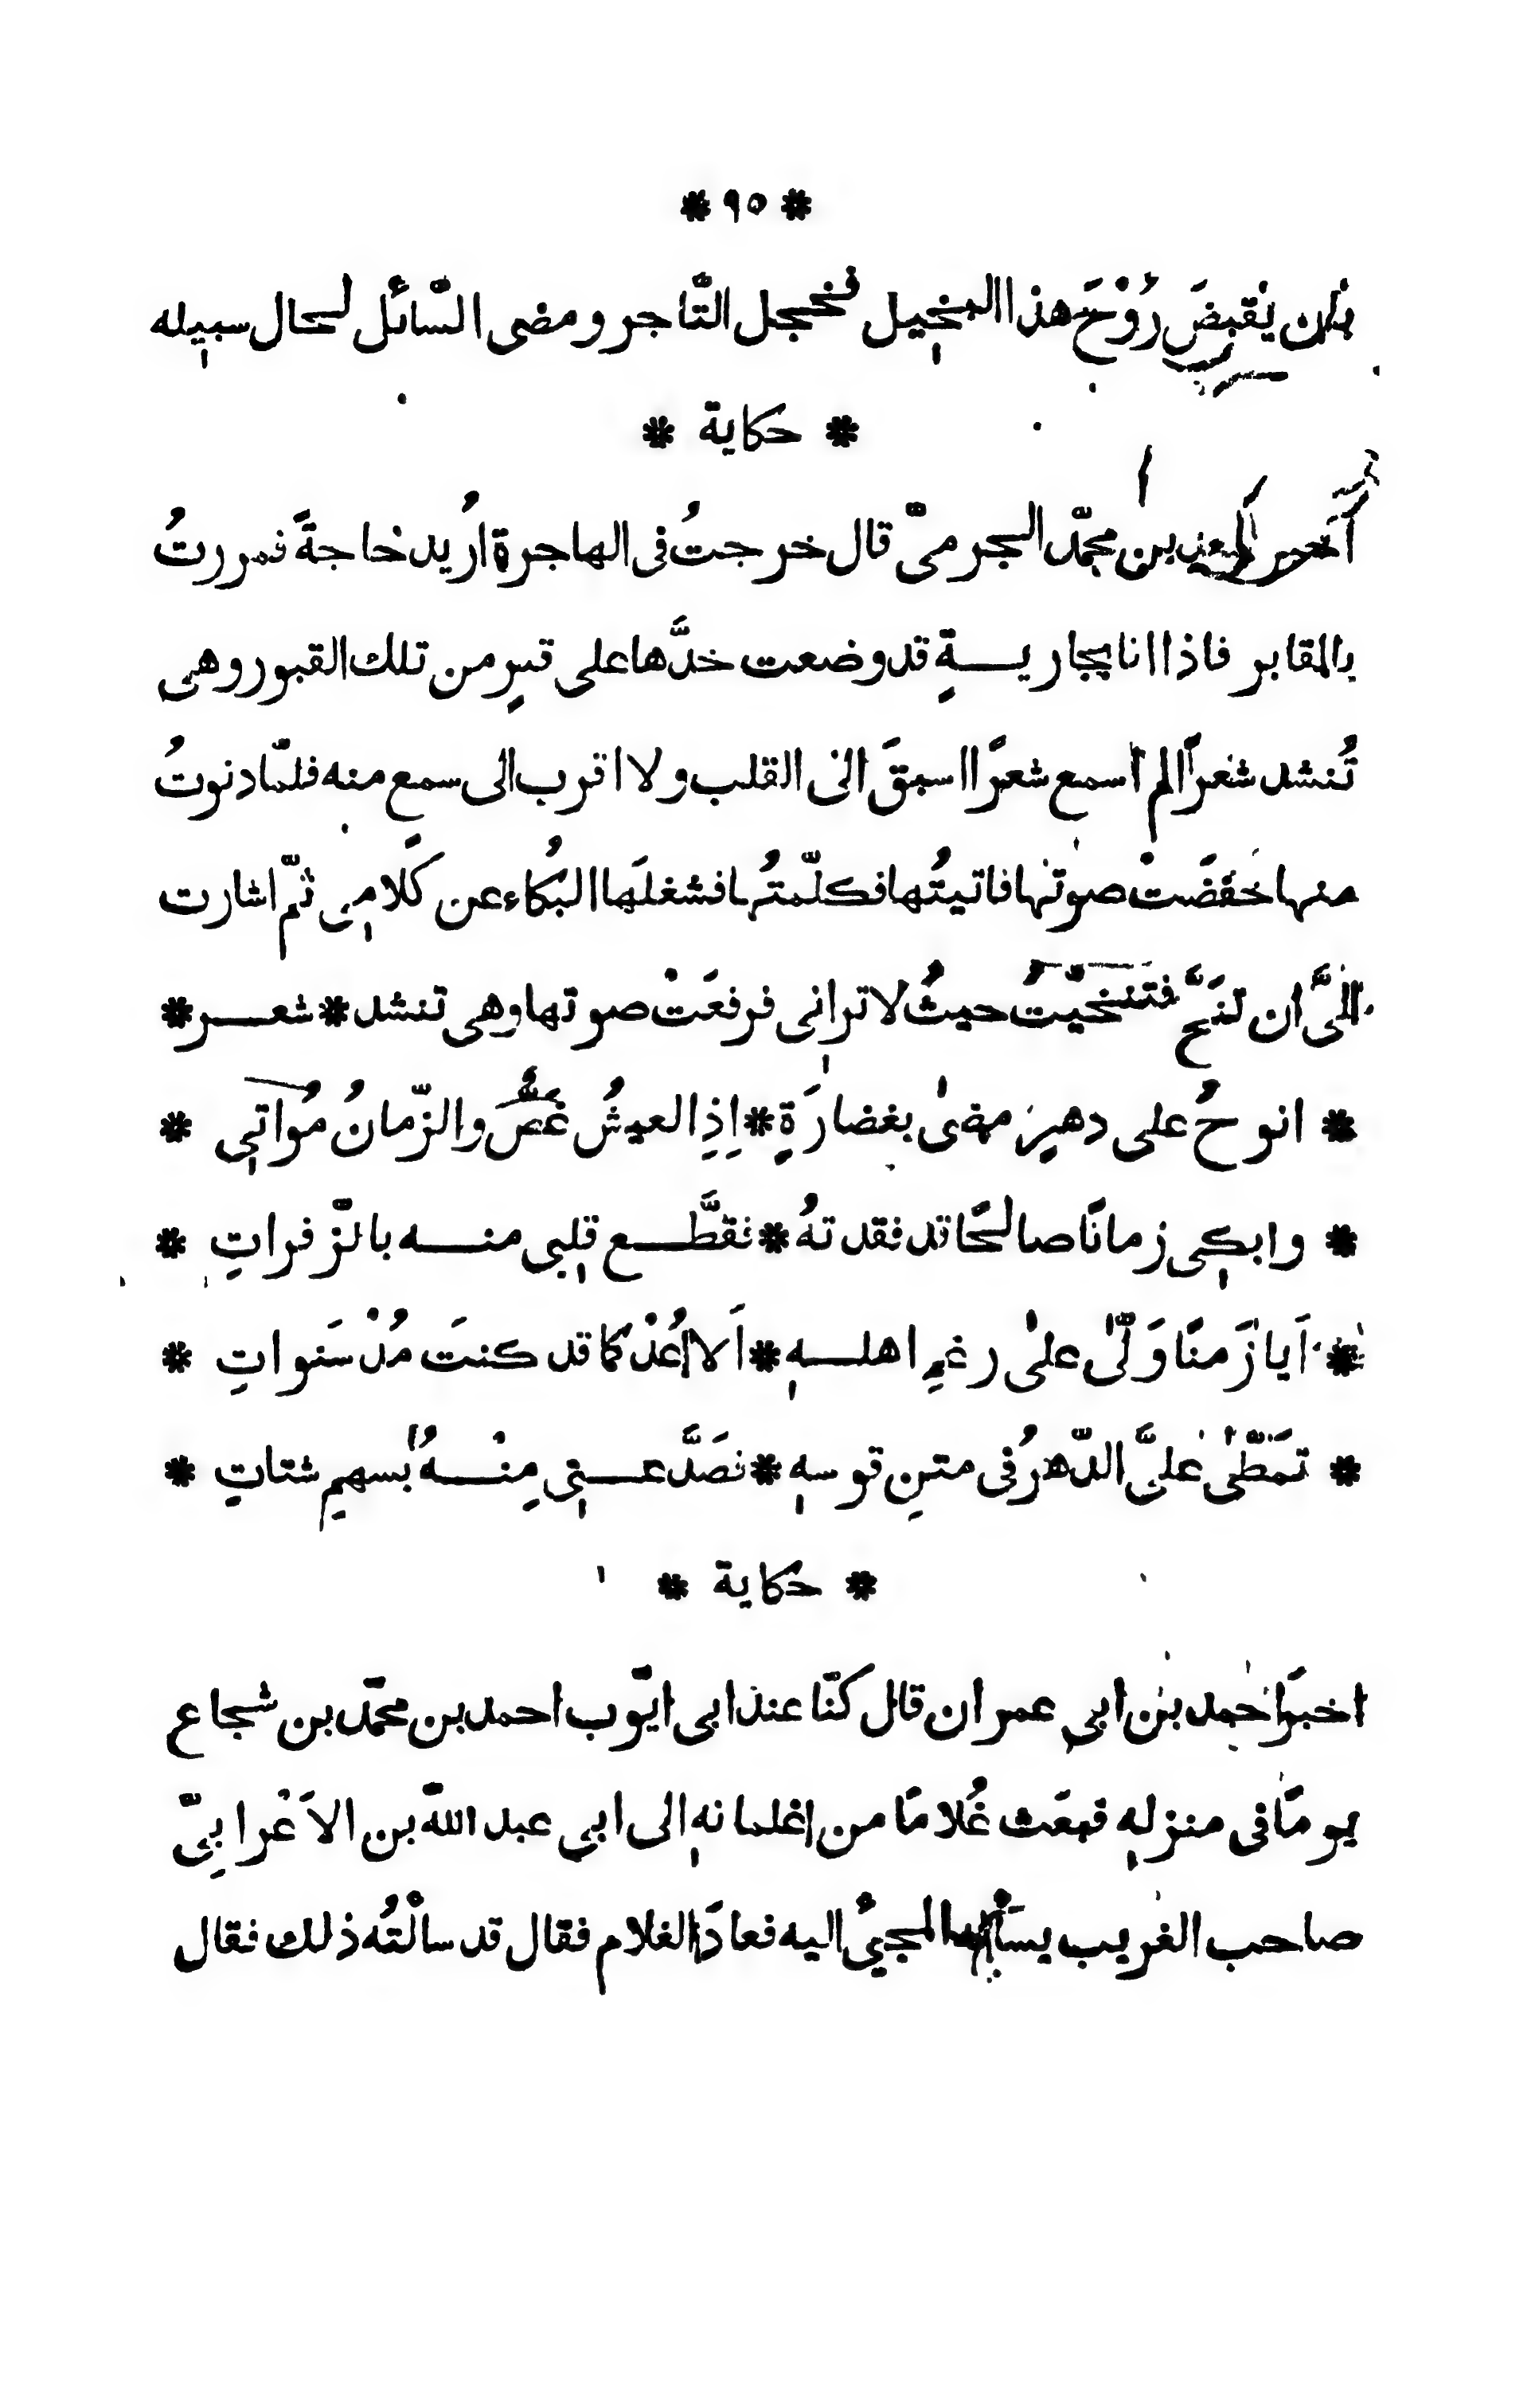 * ٩٥ *
بان يَقبِضَ رُوْحَ هذا البخيل فخجل التّاجر ومضى السّائل لحال سبيله
* حكاية *
بن محمّد الجرمىّ قال خرجتُ فى الهاجرة اُريد حاجةً فمررتُ
بالمقابر فاذا انا بجاريةٍ قد وضعت خدَّها على قبرٍ من تلك القبور وهى
تُنشد شعراً لم اسمع شعرًا اسبقَ الى القلب ولا اقرب الى سمع منه فلمّا دنوتُ
منها خفَضَتْ صوتها فاتيتُها فكلّمتُها فشغلَها البُكاء عن كَلامِى ثمّ اشارت
الىَّ ان تنَحَّ فتنحّيتُ حيثُ لا ترانى فرفعَتْ صوتها وهى تنشد * شعر *
* انوحُ على دهرٍ مضىٰ بغضارَةٍ * اِذِ العيشُ غَضٌّ والزّمانُ مُواتى *
* وابكى زمانًا صالحًا قد فقدتهُ * تقطَّع قلبى منه بالزّفراتِ *
* اَيا زَمنًا وَلّىٰ علىٰ رغمِ اهلهِ * اَلا عُدْ كما قد كنتَ مُذْ سَنواتِ *
* تمَطّىٰ علىَّ الدّهرُ فى متنِ قوسهِ * فصَدَّعنى مِنْهُ بسهمِ شتاتِ *
* حكاية *
اخبر احمد بن ابى عمران قال كنّا عند ابى ايّوب احمد بن محمّد بن شجاع
يومًا فى منزلهِ فبعَث غُلامًا من غلمانهِ الى ابى عبد اللّه بن الاَعْرابِىّ
صاحب الغريب يسألُه المجيُ اليه فعادَ الغلام فقال قد سالْتُه ذلك فقال